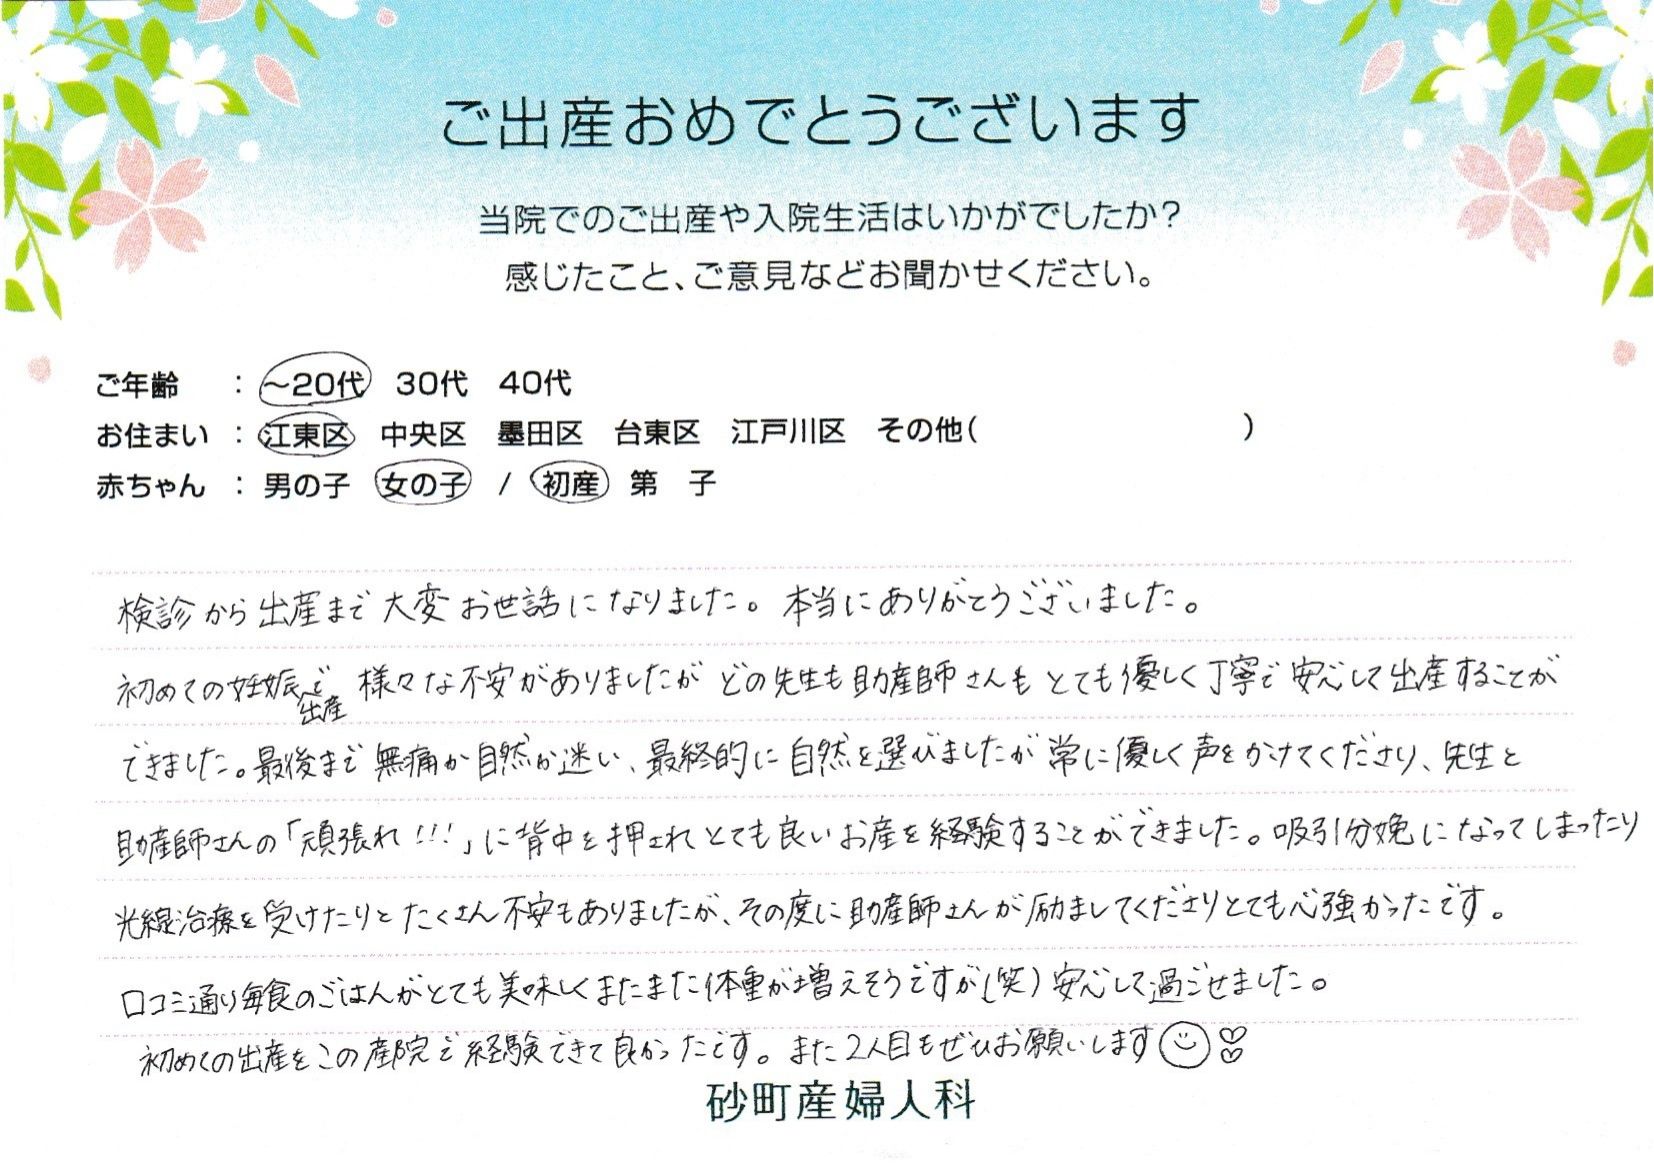 ご出産おめでとうございます
当院でのご出産や入院生活はいかがでしたか?
感じたこと、ご意見などお聞かせください。
ご年齢 : ~20代 30代 40代
お住まい : 江東区 中央区 墨田区 台東区 江戸川区 その他( )
赤ちゃん : 男の子 女の子 / 初産 第 子
検診から出産まで大変お世話になりました。本当にありがとうございました。
初めての妊娠出産で様々な不安がありましたがどの先生も助産師さんもとても優しく丁寧で安心して出産することが
できました。最後まで無痛か自然か迷い、最終的に自然を選びましたが常に優しく声をかけてくださり、先生と
助産師さんの「頑張れ!!!」に背中を押されとても良いお産を経験することができました。吸引分娩になってしまったり
光線治療を受けたりとたくさん不安もありましたが、その度に助産師さんが励ましてくださりとても心強かったです。
口コミ通り毎食のごはんがとても美味しくまたまた体重が増えそうですが(笑)安心して過ごせました。
初めての出産をこの産院で経験できて良かったです。また2人目もぜひお願いします
砂町産婦人科